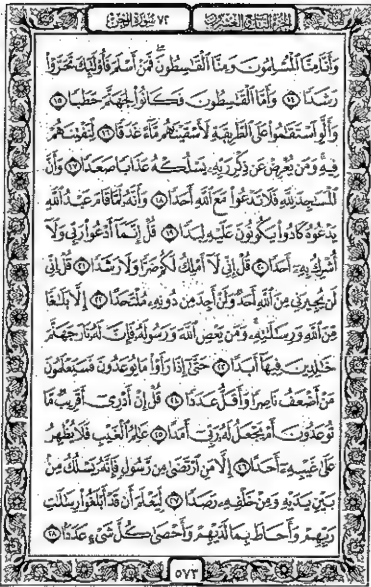 الجزء التاسع والعشرون ٧٢ سورة الجن
وَأَنَّا مِنَّا الْمُسْلِمُونَ وَمِنَّا الْقَاسِطُونَ فَمَنْ أَسْلَمَ فَأُولَٰئِكَ تَحَرَّوْا
رَشَدًا ١٤ وَأَمَّا الْقَاسِطُونَ فَكَانُوا لِجَهَنَّمَ حَطَبًا ١٥
وَأَلَّوِ اسْتَقَامُوا عَلَى الطَّرِيقَةِ لَأَسْقَيْنَاهُم مَّاءً غَدَقًا ١٦ لِنَفْتِنَهُمْ
فِيهِ وَمَن يُعْرِضْ عَن ذِكْرِ رَبِّهِ يَسْلُكْهُ عَذَابًا صَعَدًا ١٧ وَأَنَّ
الْمَسَاجِدَ لِلَّهِ فَلَا تَدْعُوا مَعَ اللَّهِ أَحَدًا ١٨ وَأَنَّهُ لَمَّا قَامَ عَبْدُ اللَّهِ
يَدْعُوهُ كَادُوا يَكُونُونَ عَلَيْهِ لِبَدًا ١٩ قُلْ إِنَّمَا أَدْعُو رَبِّي وَلَا
أُشْرِكُ بِهِ أَحَدًا ٢٠ قُلْ إِنِّي لَا أَمْلِكُ لَكُمْ ضَرًّا وَلَا رَشَدًا ٢١ قُلْ إِنِّي
لَن يُجِيرَنِي مِنَ اللَّهِ أَحَدٌ وَلَنْ أَجِدَ مِن دُونِهِ مُلْتَحَدًا ٢٢ إِلَّا بَلَاغًا
مِّنَ اللَّهِ وَرِسَالَاتِهِ وَمَن يَعْصِ اللَّهَ وَرَسُولَهُ فَإِنَّ لَهُ نَارَ جَهَنَّمَ
خَالِدِينَ فِيهَا أَبَدًا ٢٣ حَتَّىٰ إِذَا رَأَوْا مَا يُوعَدُونَ فَسَيَعْلَمُونَ
مَنْ أَضْعَفُ نَاصِرًا وَأَقَلُّ عَدَدًا ٢٤ قُلْ إِنْ أَدْرِي أَقَرِيبٌ مَّا
تُوعَدُونَ أَمْ يَجْعَلُ لَهُ رَبِّي أَمَدًا ٢٥ عَالِمُ الْغَيْبِ فَلَا يُظْهِرُ
عَلَىٰ غَيْبِهِ أَحَدًا ٢٦ إِلَّا مَنِ ارْتَضَىٰ مِن رَّسُولٍ فَإِنَّهُ يَسْلُكُ مِن
بَيْنِ يَدَيْهِ وَمِنْ خَلْفِهِ رَصَدًا ٢٧ لِّيَعْلَمَ أَن قَدْ أَبْلَغُوا رِسَالَاتِ
رَبِّهِمْ وَأَحَاطَ بِمَا لَدَيْهِمْ وَأَحْصَىٰ كُلَّ شَيْءٍ عَدَدًا ٢٨
٥٧٣